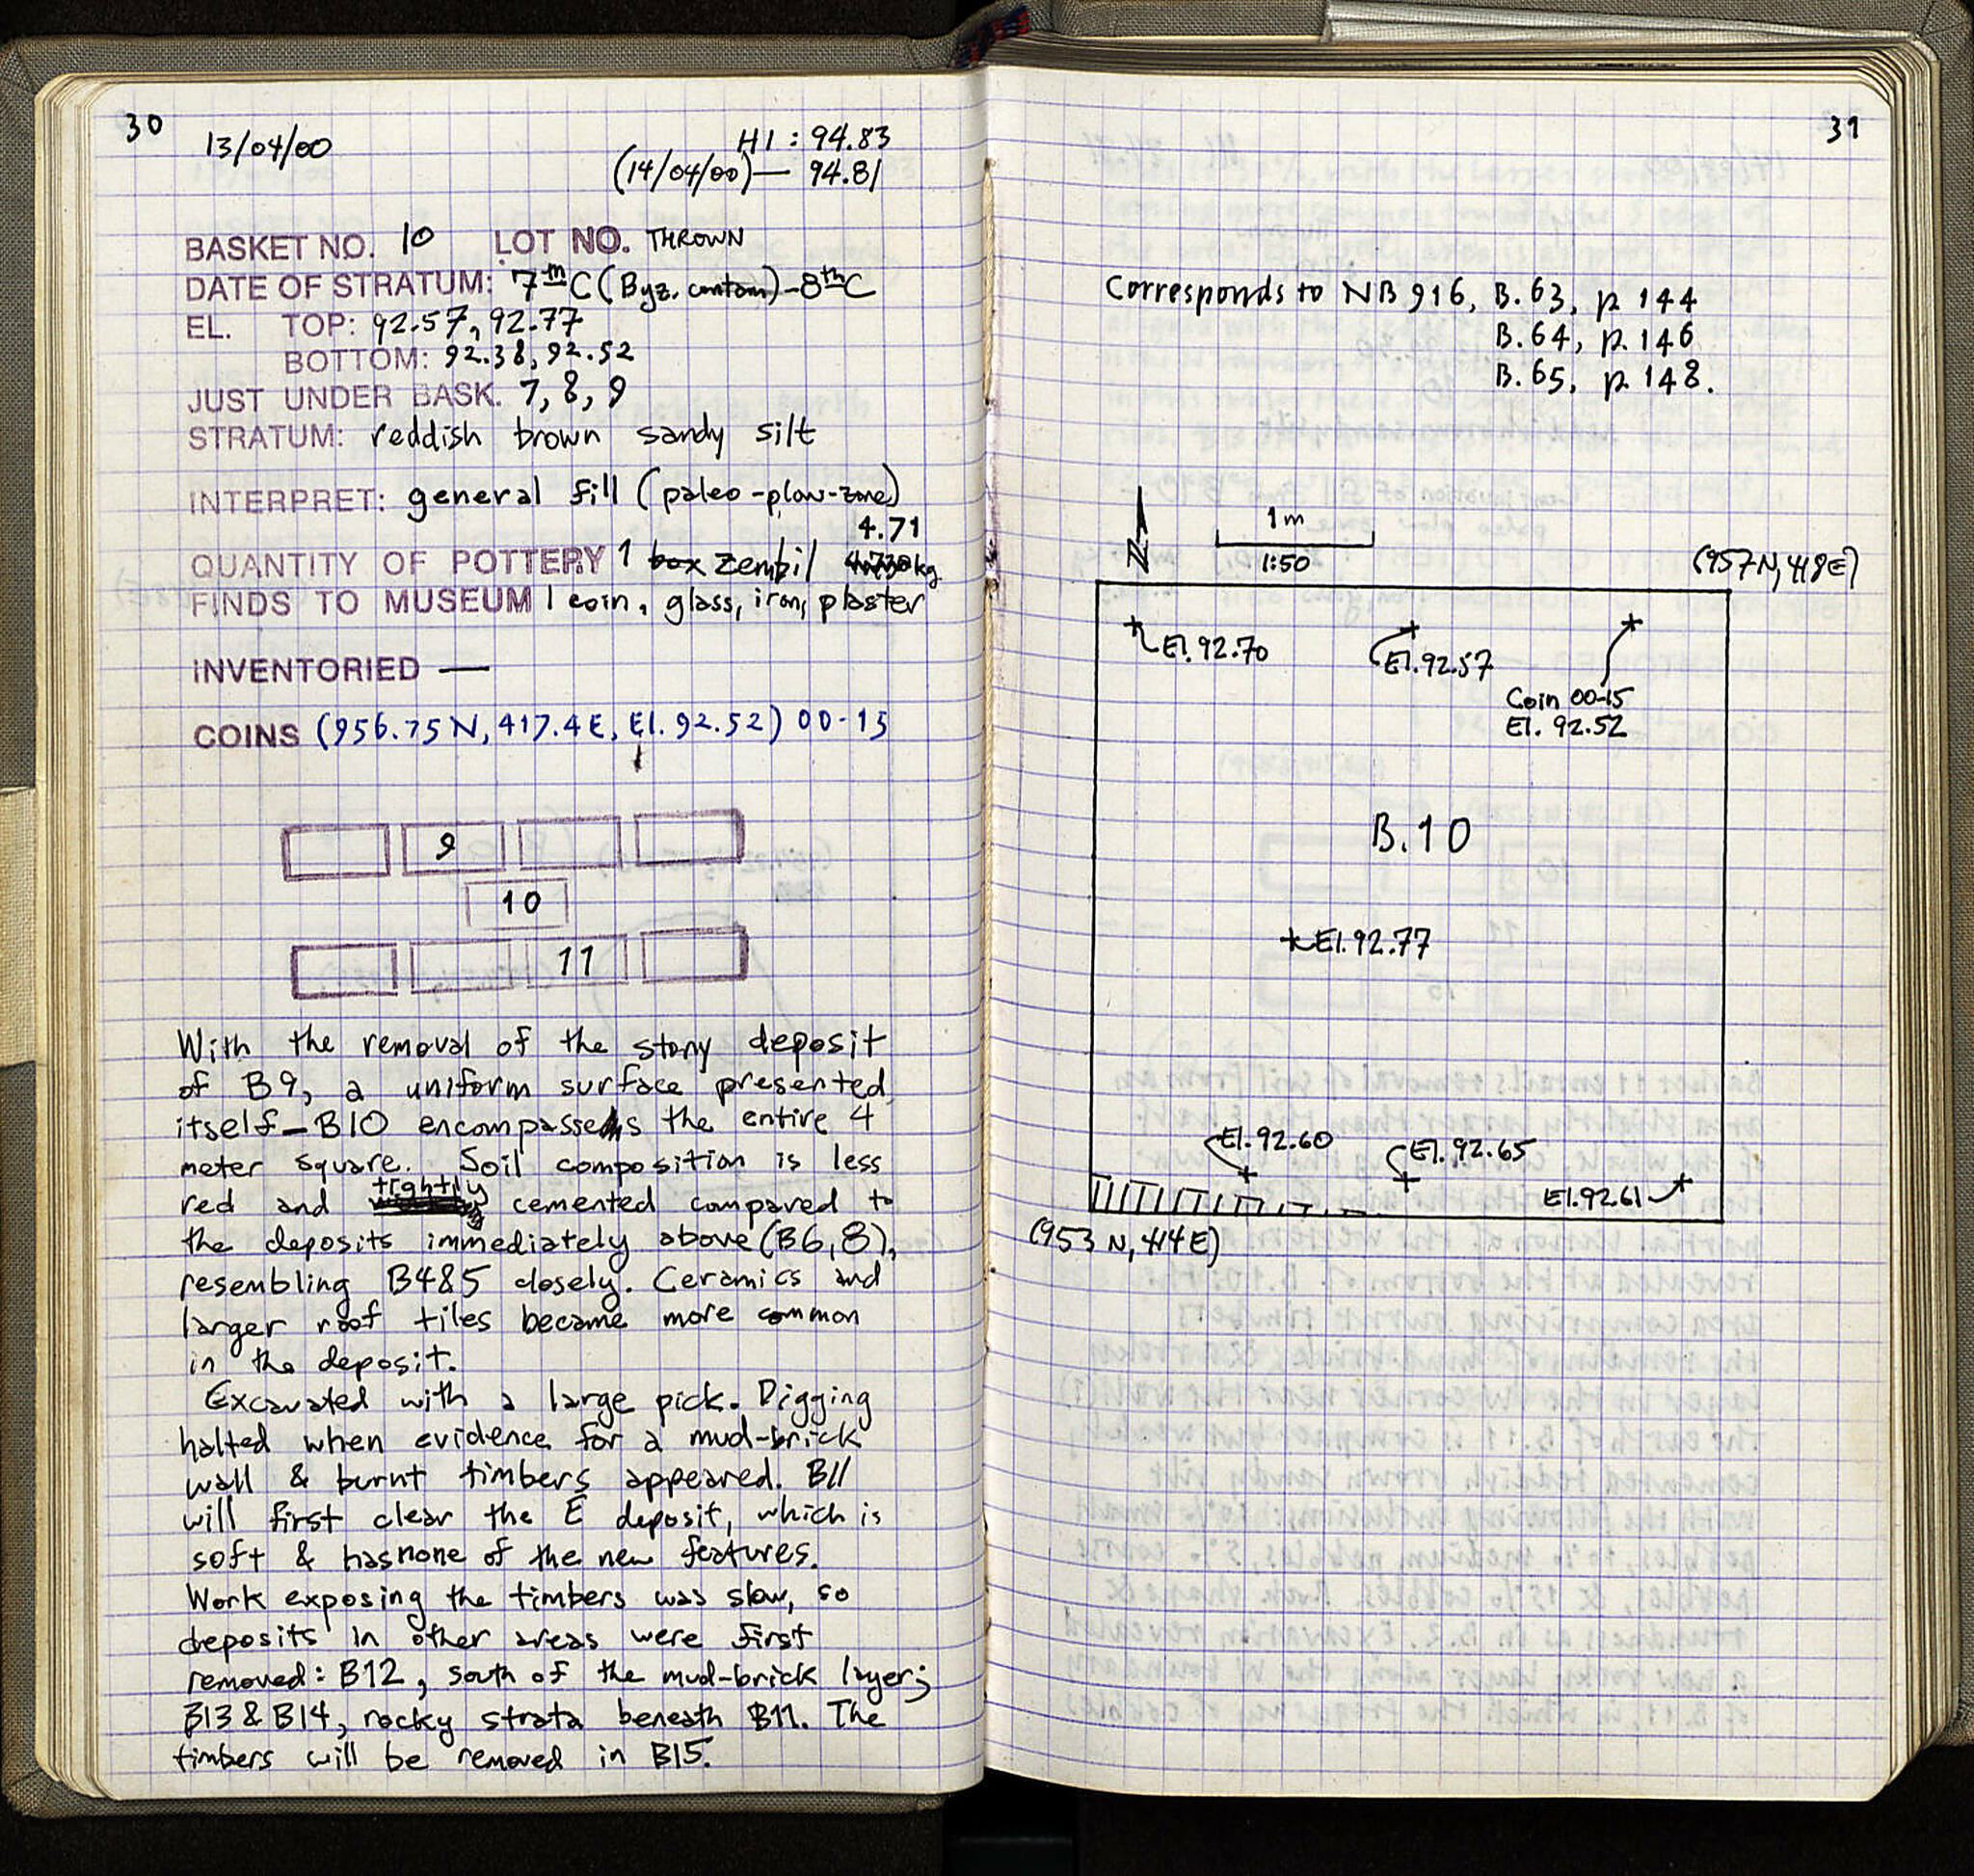 30
13/04/00
HI : 94.83
(14/04/00) — 94.81
BASKET NO. 10 LOT NO. THROWN
DATE OF STRATUM: 7th C (Byz. contam) - 8th C
EL. TOP: 92.57, 92.77
BOTTOM: 92.38, 92.52
JUST UNDER BASK. 7, 8, 9
STRATUM: reddish brown sandy silt
INTERPRET: general fill (paleo-plow-zone)
4.71
QUANTITY OF POTTERY 1 box zembil kg
FINDS TO MUSEUM 1 coin, glass, iron, plaster
INVENTORIED —
COINS (956.75 N, 417.4 E, El. 92.52) 00-15
9
10
11
With the removal of the stony deposit
of B9, a uniform surface presented
itself – B10 encompasses the entire 4
meter square. Soil composition is less
tightly
red and cemented compared to
the deposits immediately above (B6, 8),
resembling B4&5 closely. Ceramics and
larger roof tiles became more common
in the deposit.
Excavated with a large pick. Digging
halted when evidence for a mud-brick
wall & burnt timbers appeared. B11
will first clear the E deposit, which is
soft & has none of the new features.
Work exposing the timbers was slow, so
deposits in other areas were first
removed: B12, south of the mud-brick layer;
B13 & B14, rocky strata beneath B11. The
timbers will be removed in B15.
31
Corresponds to NB 916, B. 63, p. 144
B. 64, p. 146
B. 65, p. 148.
N
1 m
1:50
(957 N, 418 E)
El. 92.70
El. 92.57
Coin 00-15
El. 92.52
B. 10
El. 92.77
El. 92.60
El. 92.65
El. 92.61
(953 N, 414 E)